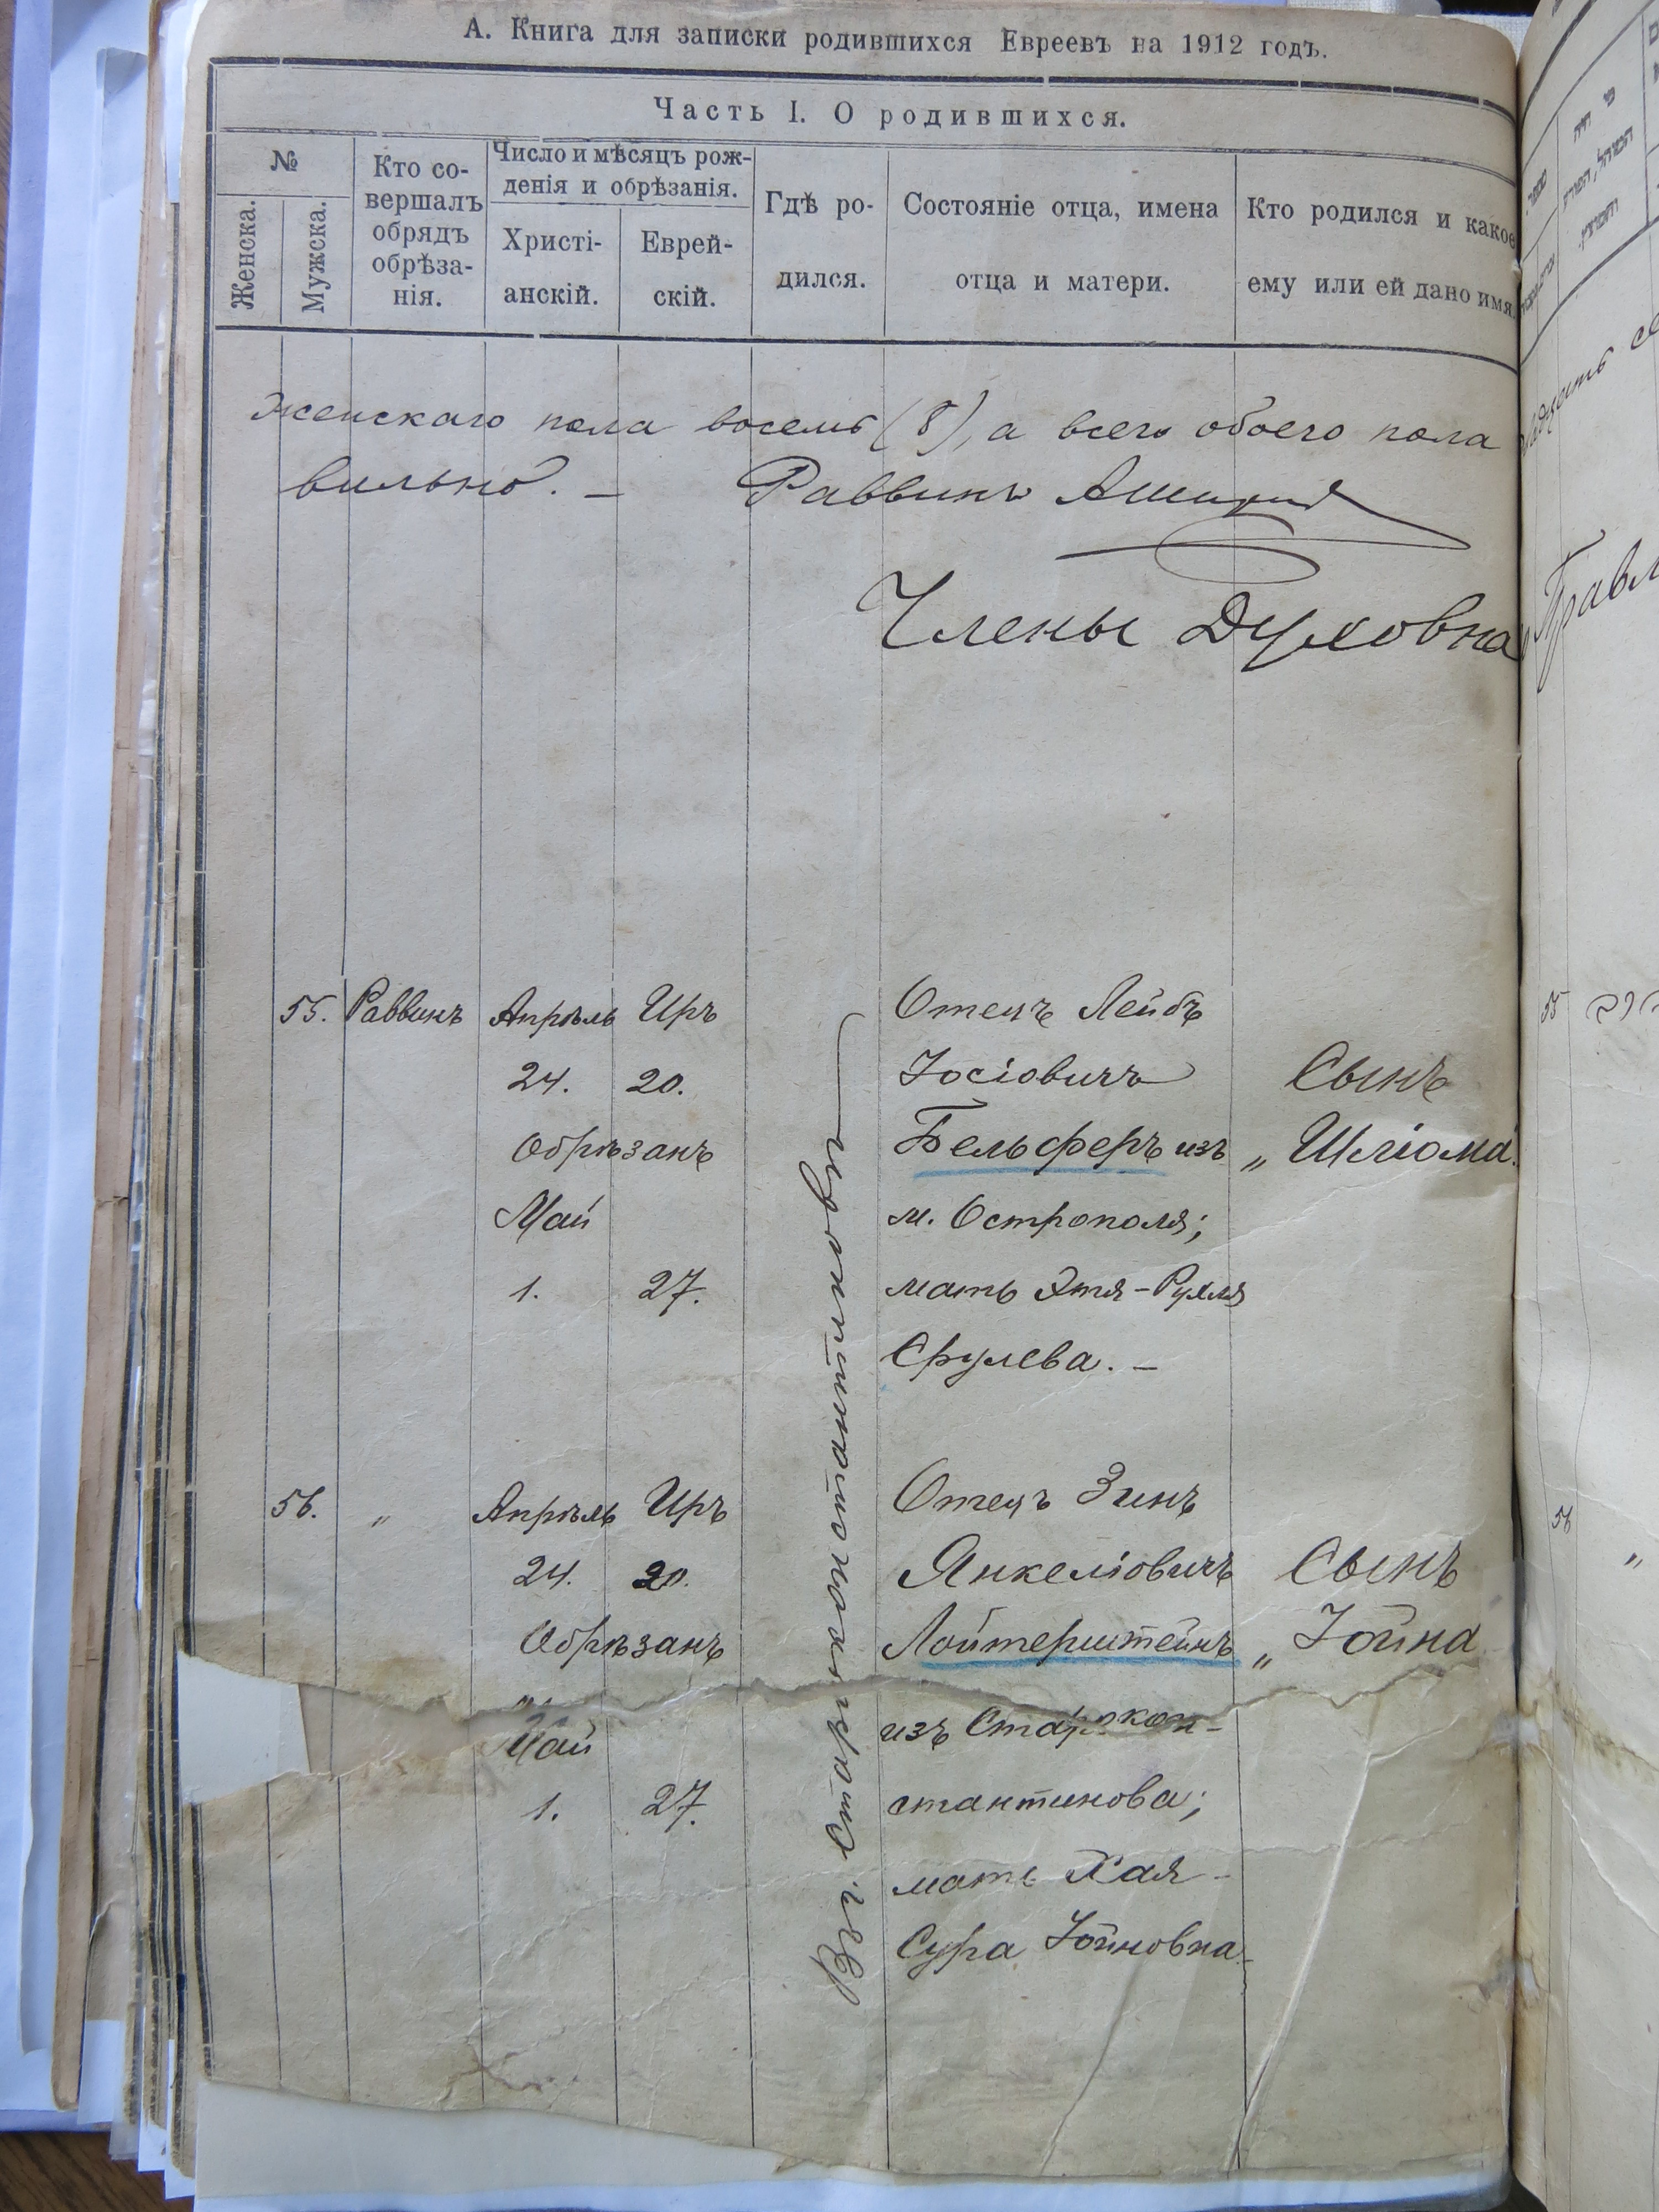 А. Книга для записки родившихся Евреевъ на 1912 годъ.
Часть I. О родившихся.
№
Женска.
Мужска.
Кто со-
вершалъ
обрядъ
обрѣза-
нія.
Число и мѣсяцъ рож-
денія и обрѣзанія.
Христі-
анскій.
Еврей-
скій.
Гдѣ ро-
дился.
Состояніе отца, имена
отца и матери.
Кто родился и какое
ему или ей дано имя.
женскаго пола восемь (8), а всего обоего пола
вильно. — Раввинъ
Члены Духовна
55. Раввинъ Апрѣль Иръ Отецъ Лейбъ
24. 20. Іосіовичъ Сынъ
Обрѣзанъ Бельферъ изъ „ Шліома.
Май м. Острополя;
1. 27. мать Этя-Рухля
Срулева. —
Въ г. Староконстантиновѣ
56. „ Апрѣль Иръ Отецъ Зинъ
24. 20. Янкеліовичъ Сынъ
Обрѣзанъ Лойтерштейнъ „ Іойна
Май изъ Старокон-
1. 27. стантинова;
мать Хая-
Сура Іойновна.
55
56 „